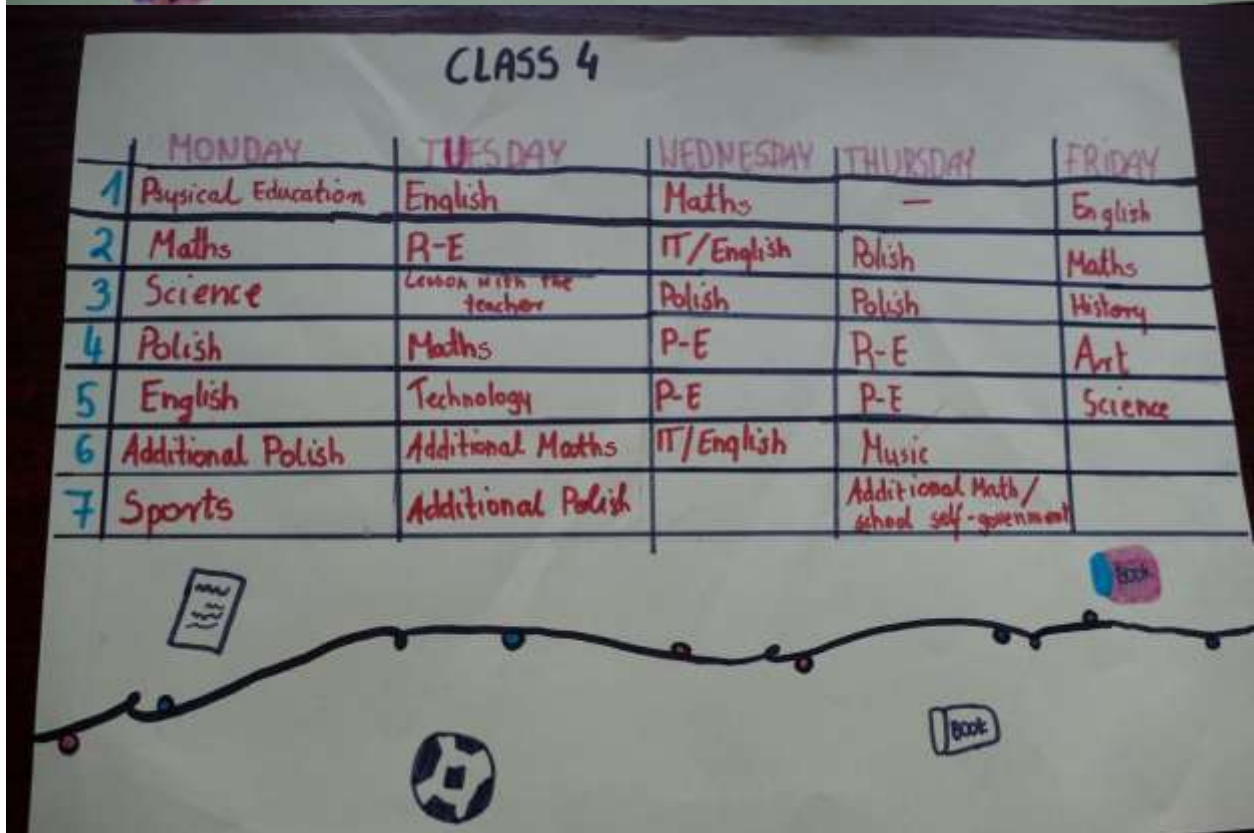 CLASS 4
MONDAY TUESDAY WEDNESDAY THURSDAY FRIDAY
1 Psysical Education English Maths – English
2 Maths R-E IT/English Polish Maths
3 Science Lesson with the teacher Polish Polish History
4 Polish Maths P-E R-E Art
5 English Technology P-E P-E Science
6 Additional Polish Additional Maths IT/English Music
7 Sports Additional Polish Additional Math/ school self-govenment
BOOK
BOOK